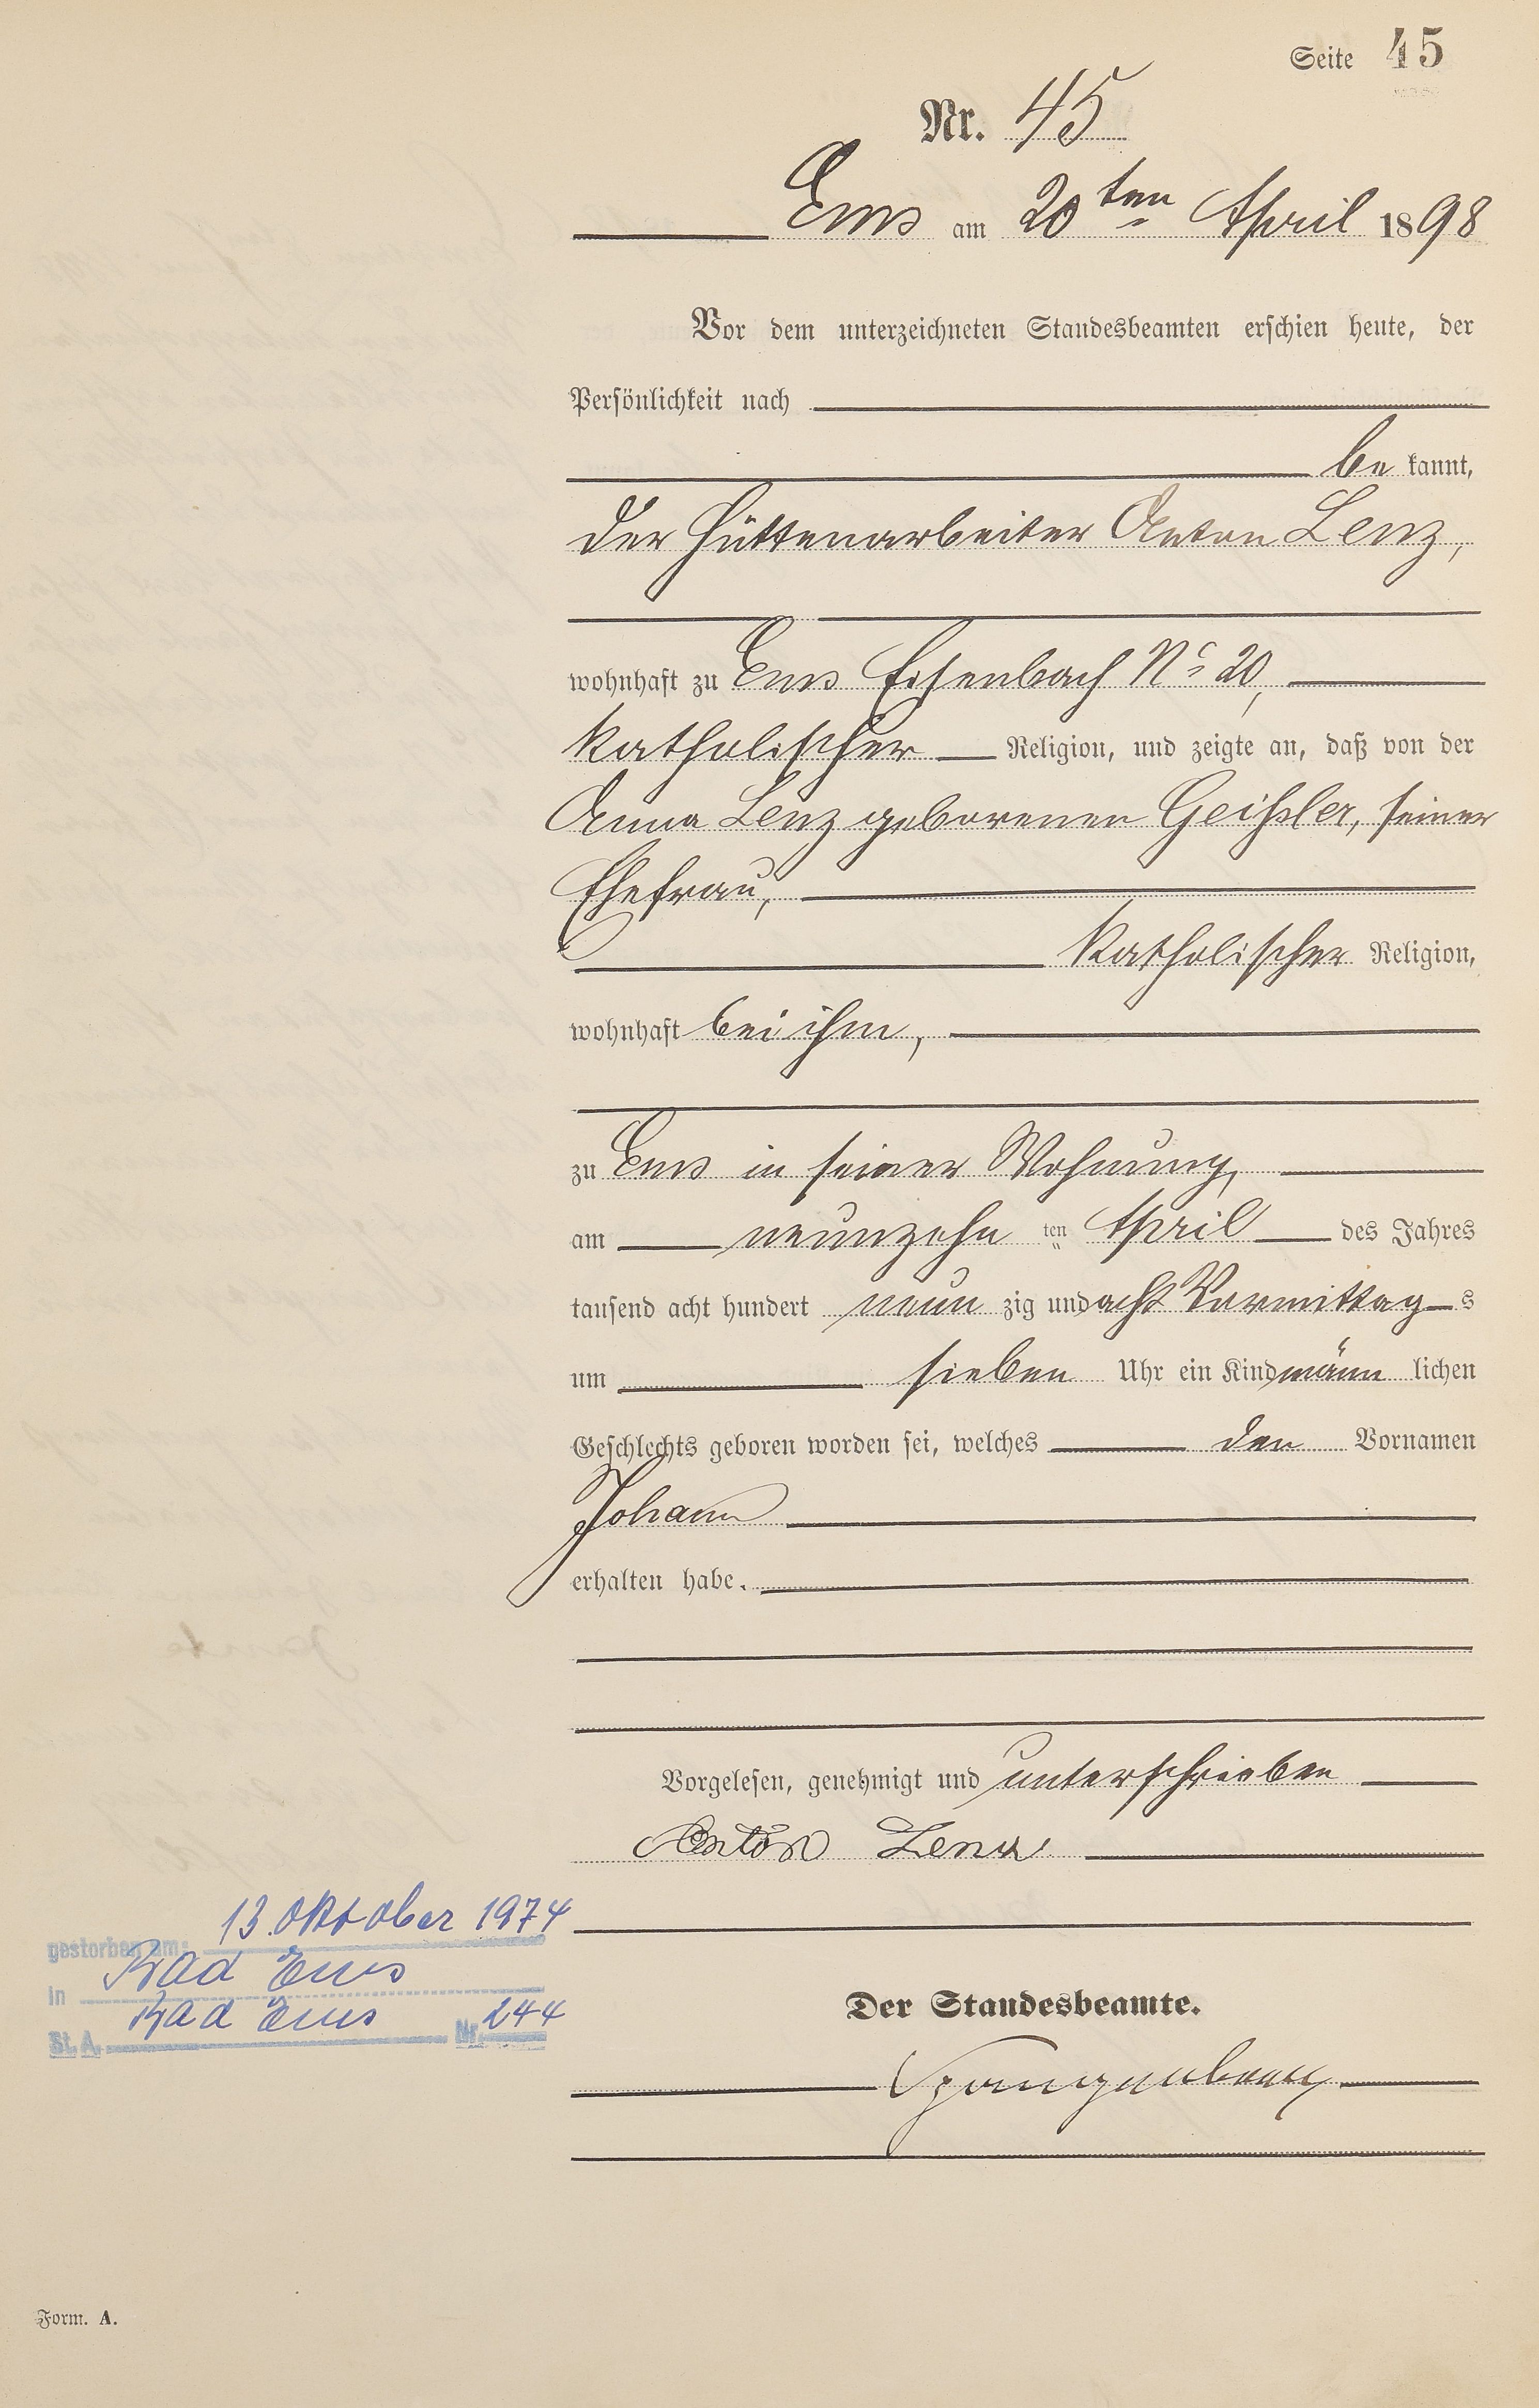 Seite 45
Nr. 45
Ems am 20ten April 1898
Vor dem unterzeichneten Standesbeamten erschien heute, der
Persönlichkeit nach
be kannt,
der Hüttenarbeiter Anton Lenz,
wohnhaft zu Ems Eisenbach No 20,
katholischer Religion, und zeigte an, daß von der
Anna Lenz geborenen Geißler, seiner
Ehefrau,
katholischer Religion,
wohnhaft bei ihm,
zu Ems in seiner Wohnung,
am neunzehn ten April des Jahres
tausend acht hundert neun zig und acht Vormittag s
um sieben Uhr ein Kind männ lichen
Geschlechts geboren worden sei, welches den Vornamen
Johann
erhalten habe.
Vorgelesen, genehmigt und unterschrieben
Anton Lenz
gestorben am: 13. Oktober 1974
in Bad Ems
St. A. Bad Ems Nr. 244
Der Standesbeamte.
Spangenberg
Form. A.